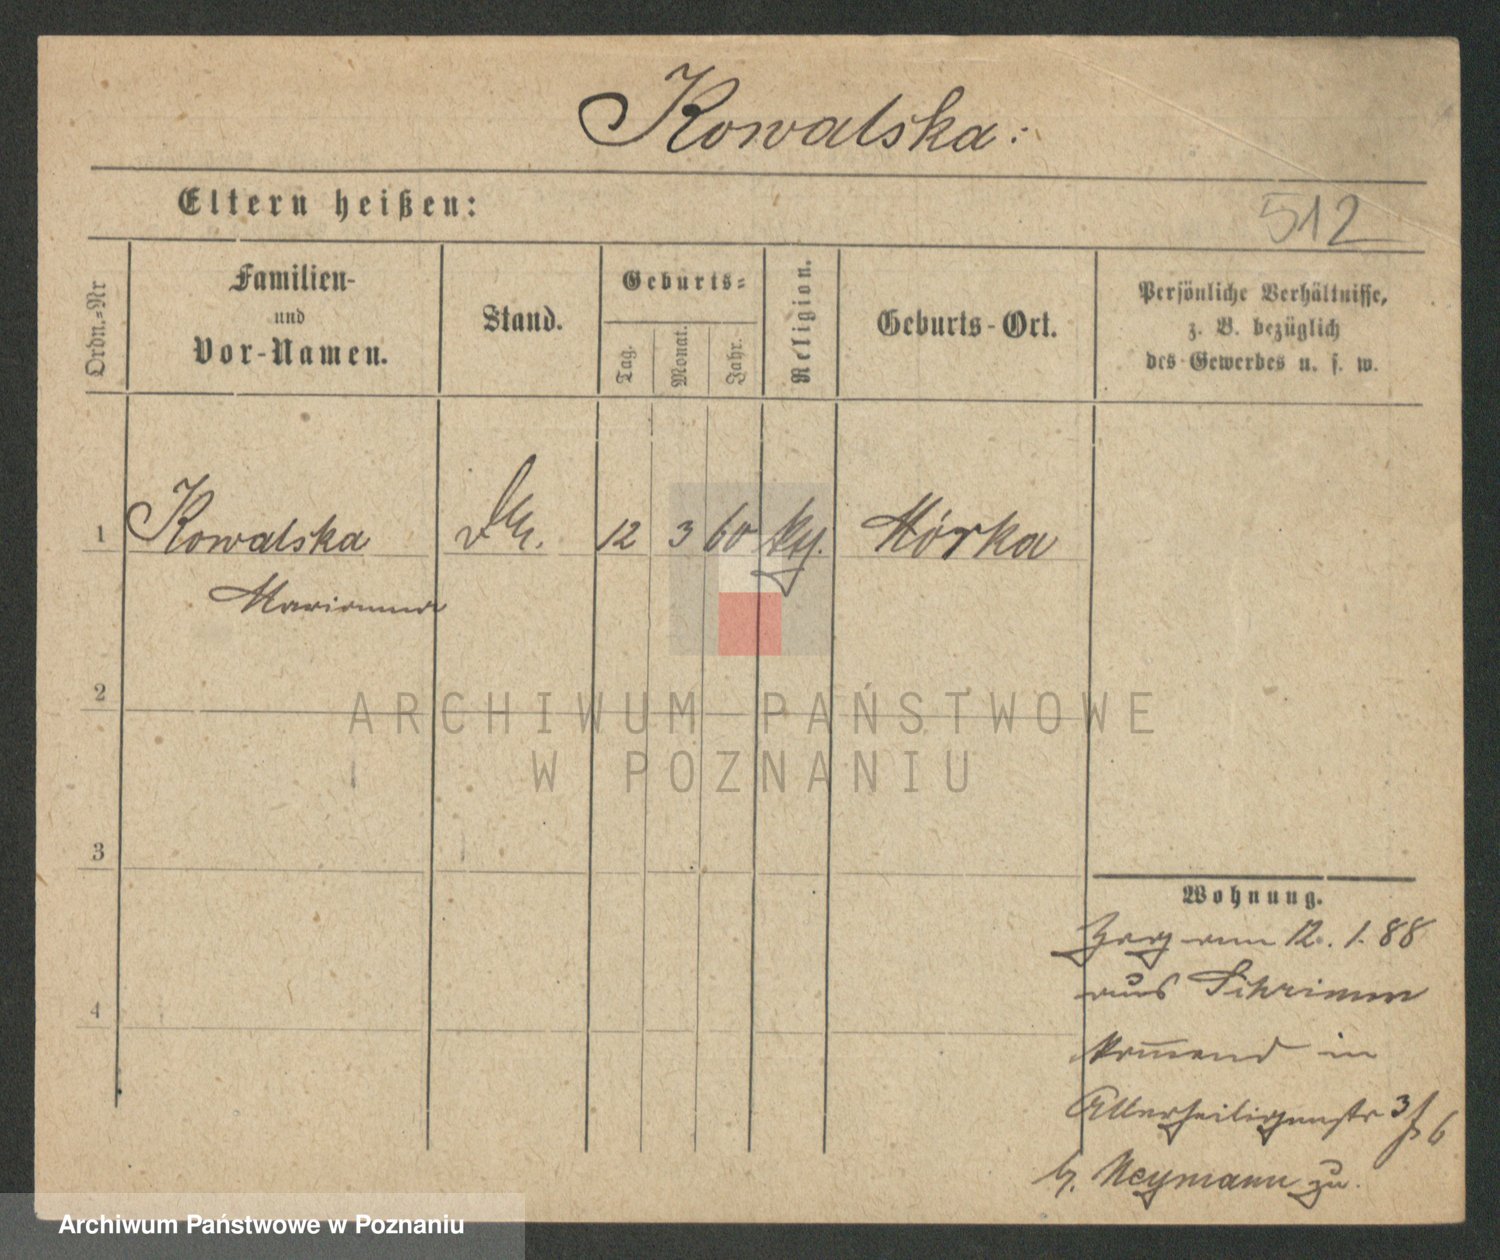 Kowalska:
Eltern heißen:
512
Ordn.=Nr
Familien-
und
Vor-Namen.
Stand.
Geburts=
Tag.
Monat.
Jahr.
Religion.
Geburts-Ort.
Persönliche Verhältnisse,
z. B. bezüglich
des Gewerbes u. s. w.
1 Kowalska 12 3 60 Mórka
Marianna
2
3
4
Wohnung.
Zog am 12. 1. 88
aus Schrimm
kommend in
Allerheiligenstr 3/6
b. Neymann zu.
ARCHIWUM PAŃSTWOWE
W POZNANIU
Archiwum Państwowe w Poznaniu